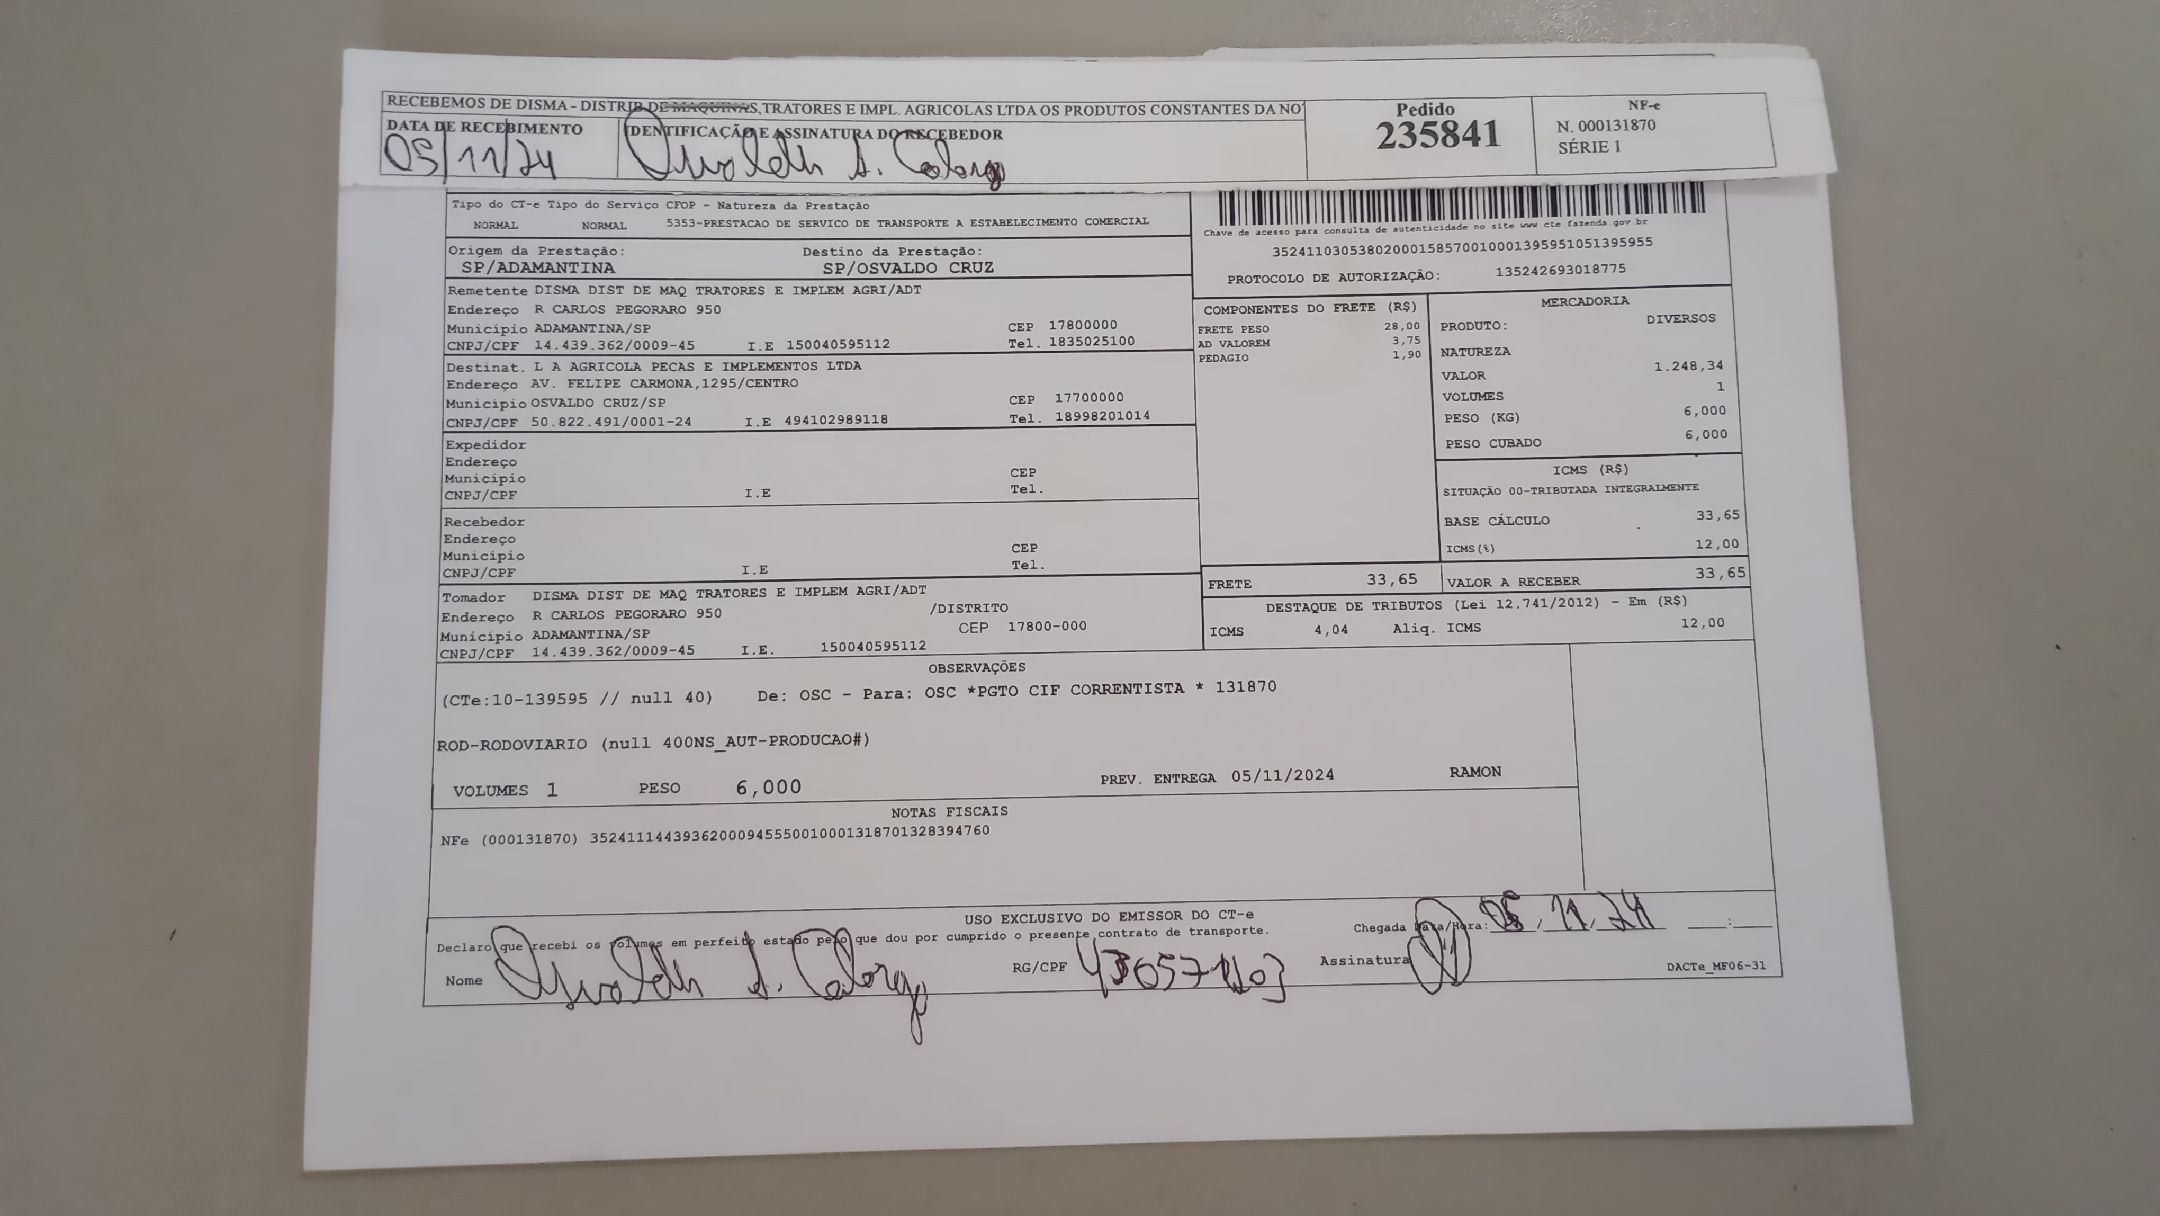 RECEBEMOS DE DISMA - DISTRIB DE MAQUINAS,TRATORES E IMPL. AGRICOLAS LTDA OS PRODUTOS CONSTANTES DA NO
DATA DE RECEBIMENTO IDENTIFICAÇÃO E ASSINATURA DO RECEBEDOR
05/11/24
Pedido
235841
NF-e
N. 000131870
SÉRIE 1
Tipo do CT-e Tipo do Serviço CFOP - Natureza da Prestação
NORMAL NORMAL 5353-PRESTACAO DE SERVICO DE TRANSPORTE A ESTABELECIMENTO COMERCIAL
Chave de acesso para consulta de autenticidade no site www cte fazenda gov br
35241103053802000158570010001395951051395955
PROTOCOLO DE AUTORIZAÇÃO: 135242693018775
Origem da Prestação: Destino da Prestação:
SP/ADAMANTINA SP/OSVALDO CRUZ
Remetente DISMA DIST DE MAQ TRATORES E IMPLEM AGRI/ADT
Endereço R CARLOS PEGORARO 950
Município ADAMANTINA/SP CEP 17800000
CNPJ/CPF 14.439.362/0009-45 I.E 150040595112 Tel. 1835025100
Destinat. L A AGRICOLA PECAS E IMPLEMENTOS LTDA
Endereço AV. FELIPE CARMONA,1295/CENTRO
Município OSVALDO CRUZ/SP CEP 17700000
CNPJ/CPF 50.822.491/0001-24 I.E 494102989118 Tel. 18998201014
Expedidor
Endereço
Município CEP
CNPJ/CPF I.E Tel.
Recebedor
Endereço
Município CEP
CNPJ/CPF I.E Tel.
Tomador DISMA DIST DE MAQ TRATORES E IMPLEM AGRI/ADT
Endereço R CARLOS PEGORARO 950 /DISTRITO
Município ADAMANTINA/SP CEP 17800-000
CNPJ/CPF 14.439.362/0009-45 I.E. 150040595112
COMPONENTES DO FRETE (R$)
FRETE PESO 28,00
AD VALOREM 3,75
PEDAGIO 1,90
MERCADORIA
PRODUTO: DIVERSOS
NATUREZA
VALOR 1.248,34
VOLUMES 1
PESO (KG) 6,000
PESO CUBADO 6,000
ICMS (R$)
SITUAÇÃO 00-TRIBUTADA INTEGRALMENTE
BASE CÁLCULO 33,65
ICMS(%) 12,00
FRETE 33,65 VALOR A RECEBER 33,65
DESTAQUE DE TRIBUTOS (Lei 12.741/2012) - Em (R$)
ICMS 4,04 Aliq. ICMS 12,00
OBSERVAÇÕES
(CTe:10-139595 // null 40) De: OSC - Para: OSC *PGTO CIF CORRENTISTA * 131870
ROD-RODOVIARIO (null 400NS_AUT-PRODUCAO#)
VOLUMES 1 PESO 6,000 PREV. ENTREGA 05/11/2024 RAMON
NOTAS FISCAIS
NFe (000131870) 35241114439362000945550010001318701328394760
USO EXCLUSIVO DO EMISSOR DO CT-e
Declaro que recebi os volumes em perfeito estado pelo que dou por cumprido o presente contrato de transporte.
Chegada Data/Hora: 05.11.24 :
Nome RG/CPF Assinatura
DACTe_MF06-31